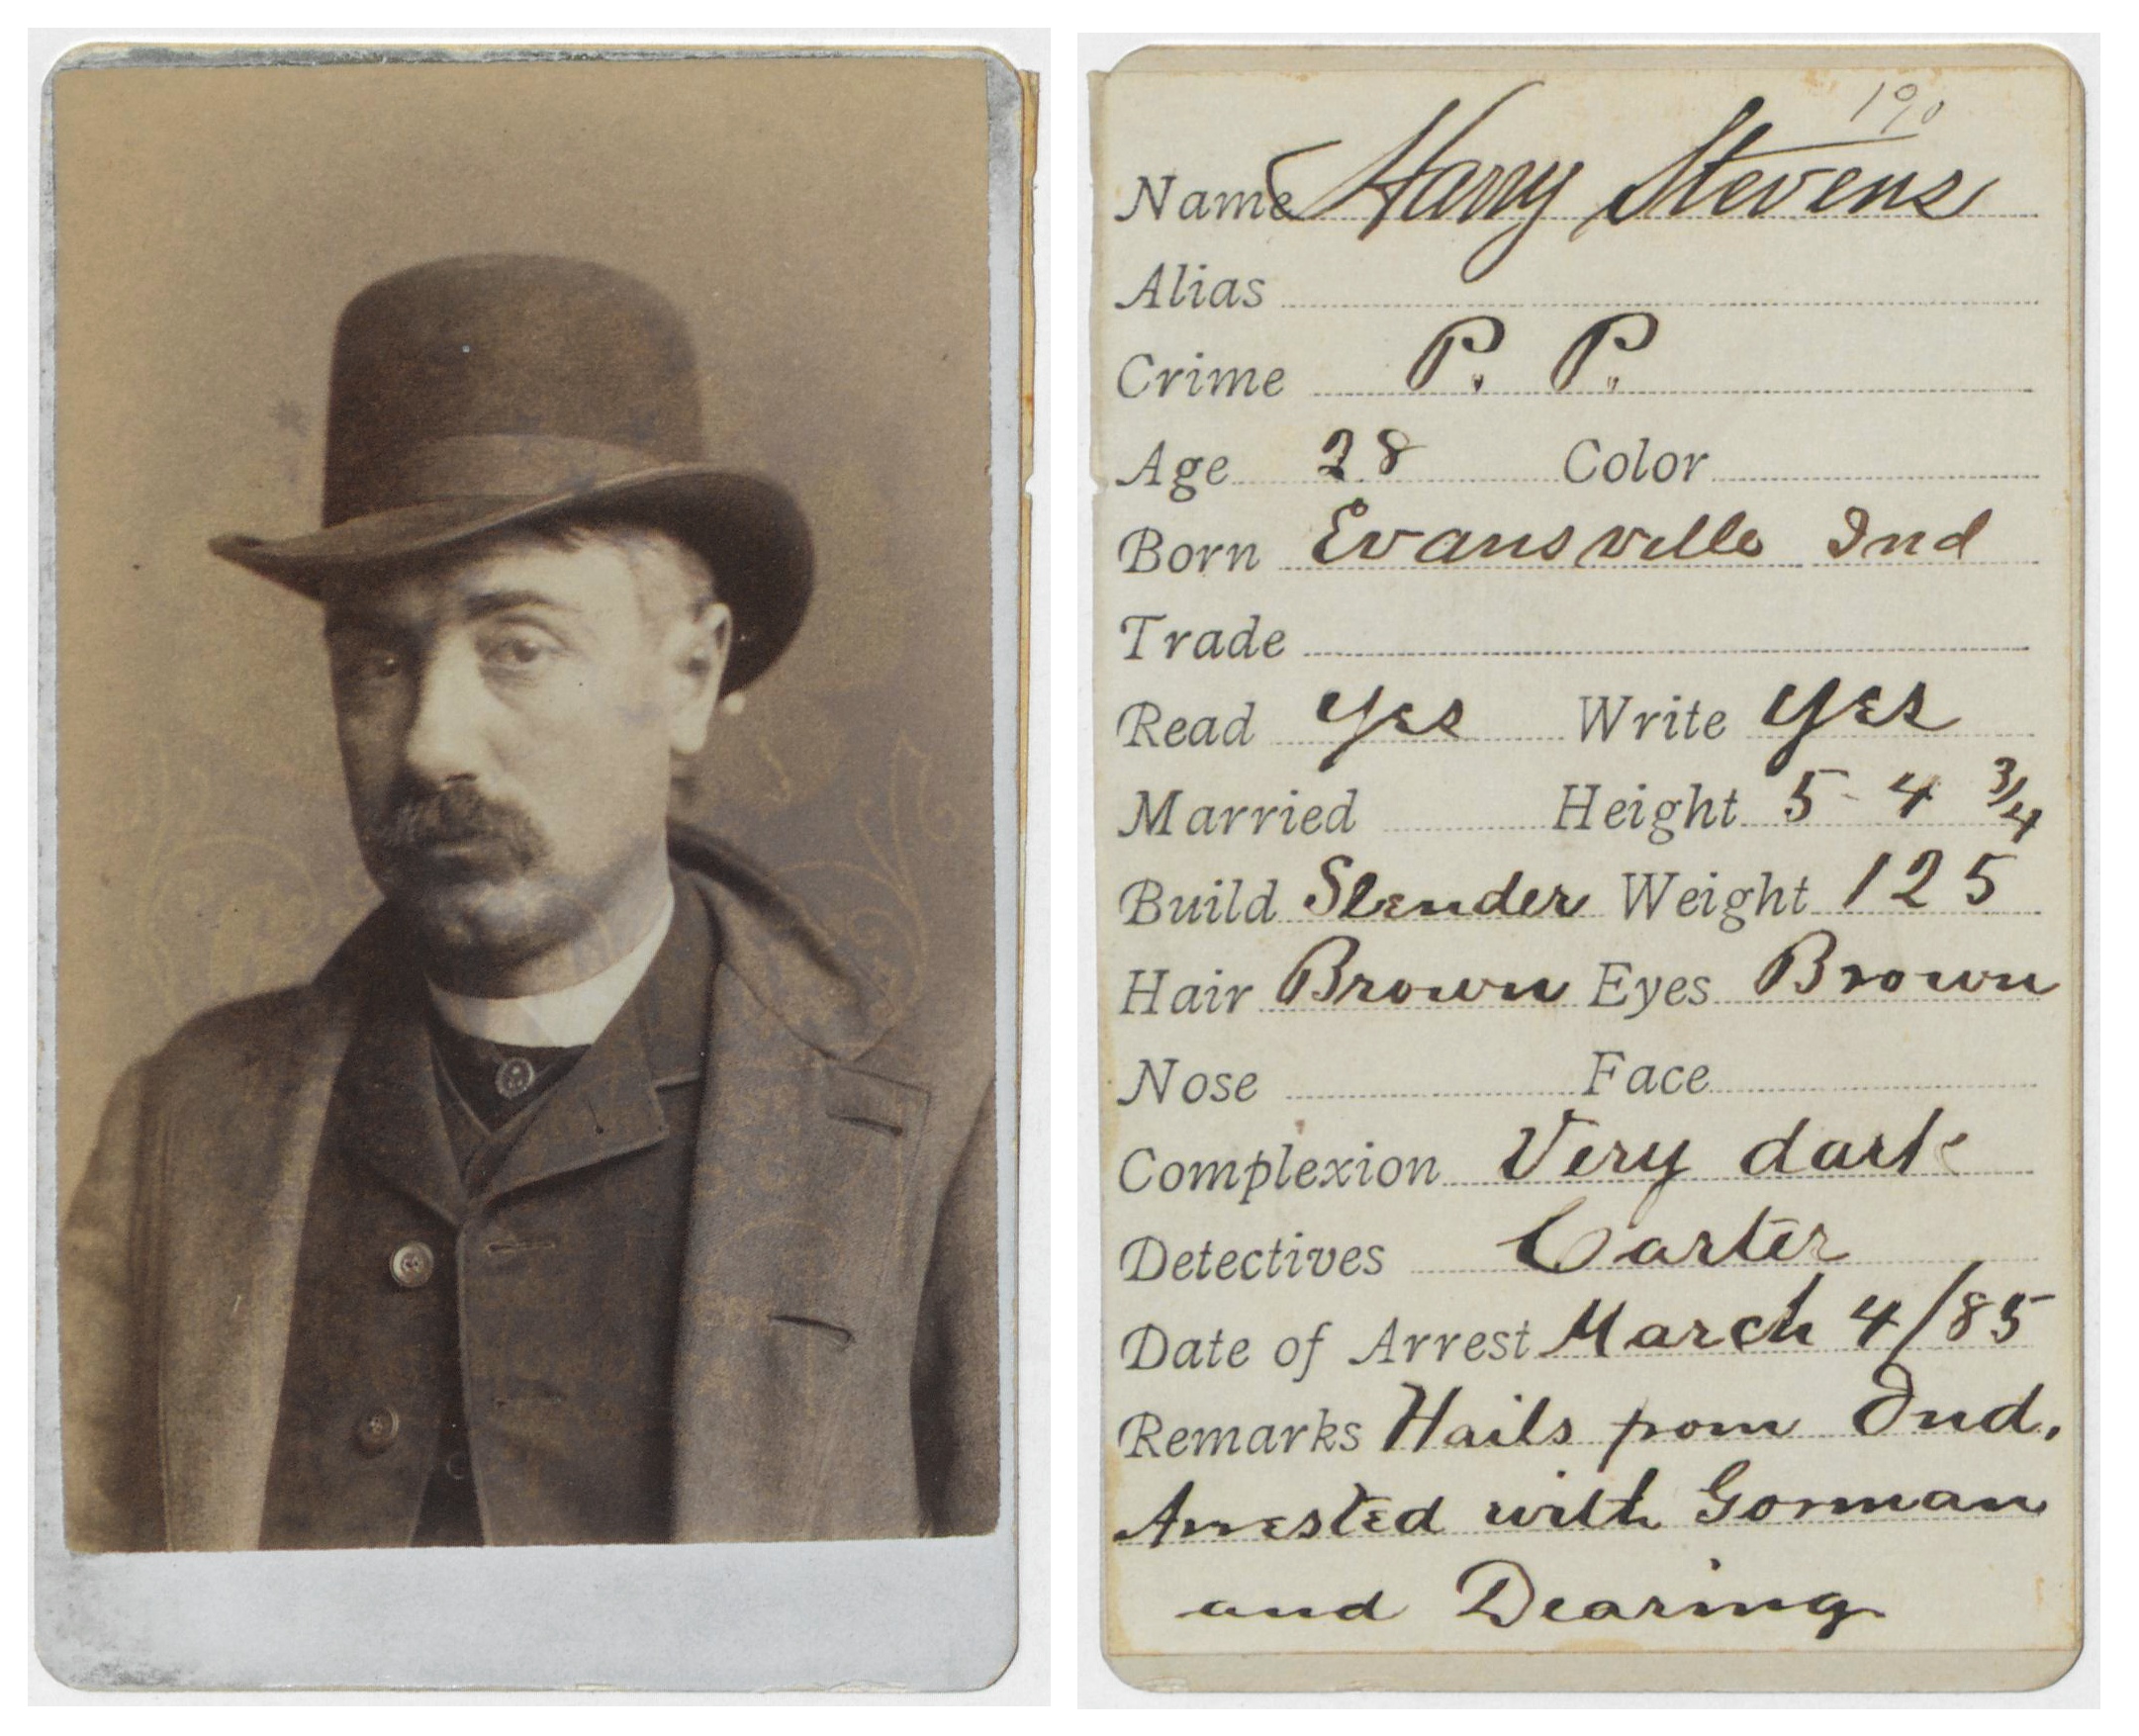 190
Name Harry Stevens
Alias
Crime P. P.
Age 28 Color
Born Evansville Ind
Trade
Read Yes Write Yes
Married Height 5 - 4 3/4
Build Slender Weight 125
Hair Brown Eyes Brown
Nose Face
Complexion Very dark
Detectives Carter
Date of Arrest March 4/85
Remarks Hails from Ind.
Arrested with Gorman
and Dearing